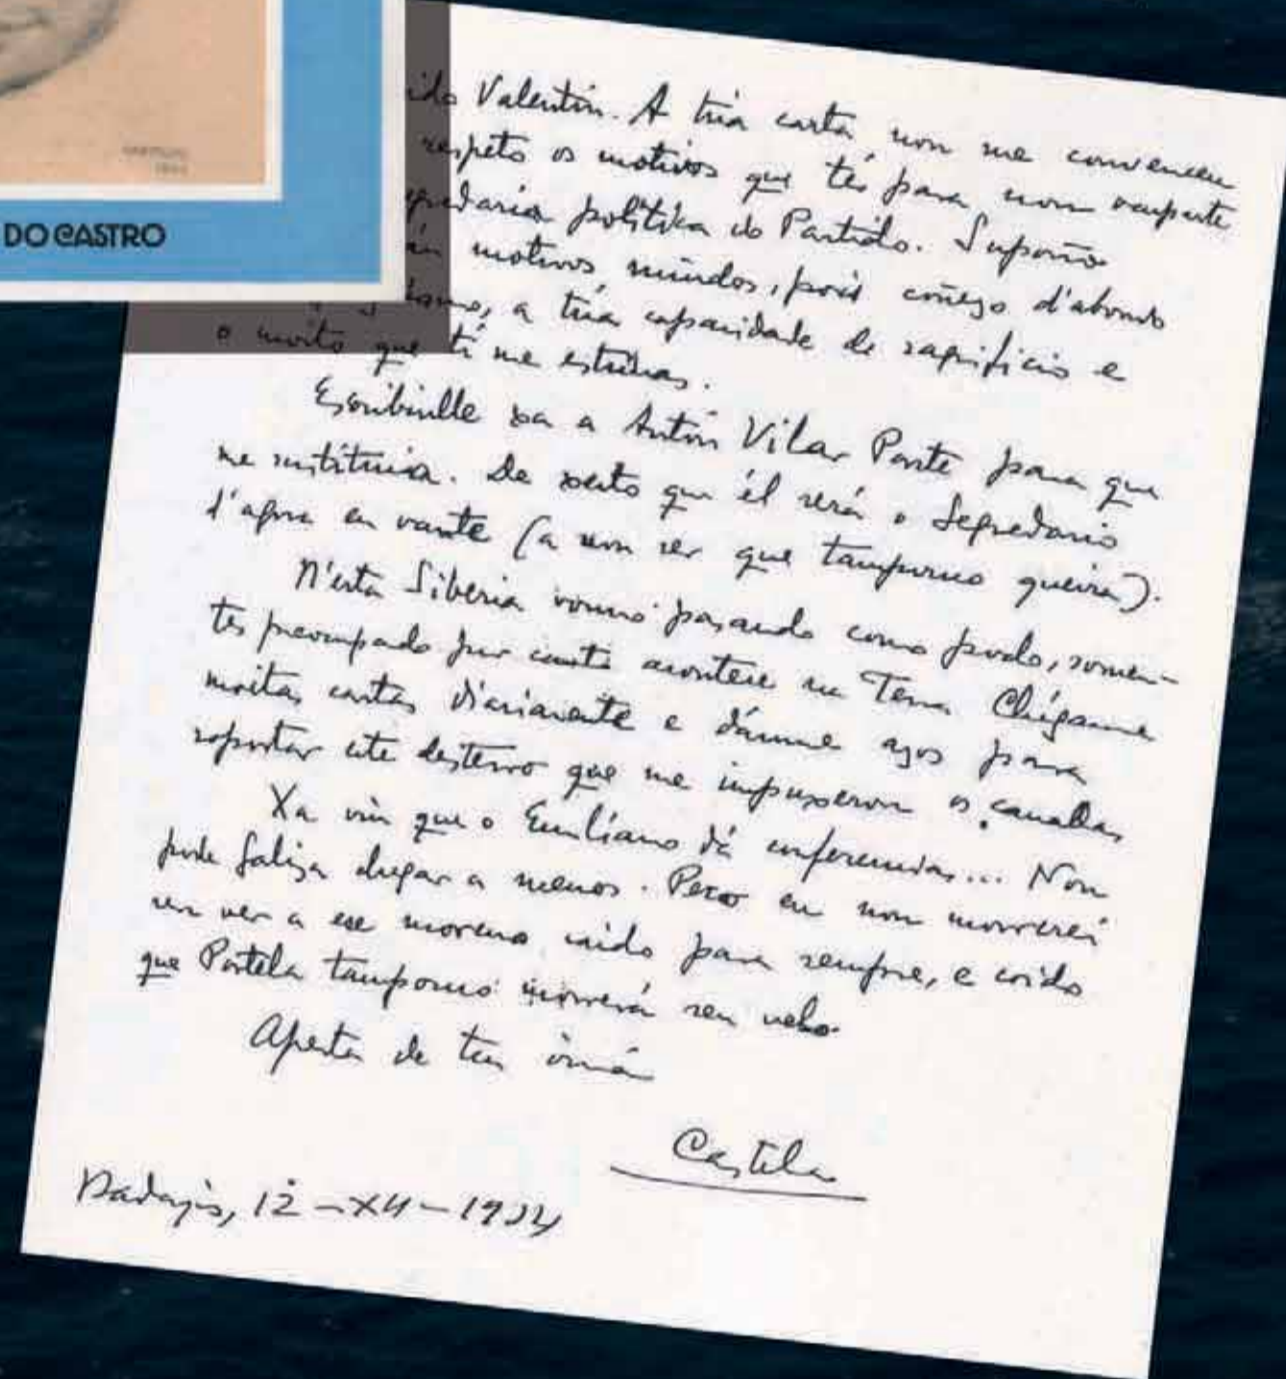 DO CASTRO
ido Valentín. A túa carta non me convenceu
respeto os motivos que tés para non ocuparte
gredaría política do Partido. Supoño
án motivos mindos, pois coñezo d'abondo
, a túa capacidade de sagrificio e
o moito que tí me estimas.
Escribinlle xa a Antón Vilar Ponte para que
me sustitúia. De xeito que él será o Segredario
d'agora en vante (a non ser que tampouco queira).
N'esta Siberia vomo pasando como podo, somen-
tes preocupado por canto acontece na Terra. Chéganme
moitas cartas diariamente e dánme azos para
soportar este desterro que me impuxeron os canallas
Xa vin que o Emiliano dá conferencias... Non
pode Galiza chegar a menos. Pero eu non morrerei
sen ver a ese moreno caido para sempre, e coido
que Portela tampouco morrerá sen velo.
Aperta de teu irmá
Castelao
Badajós, 12-XII-1934